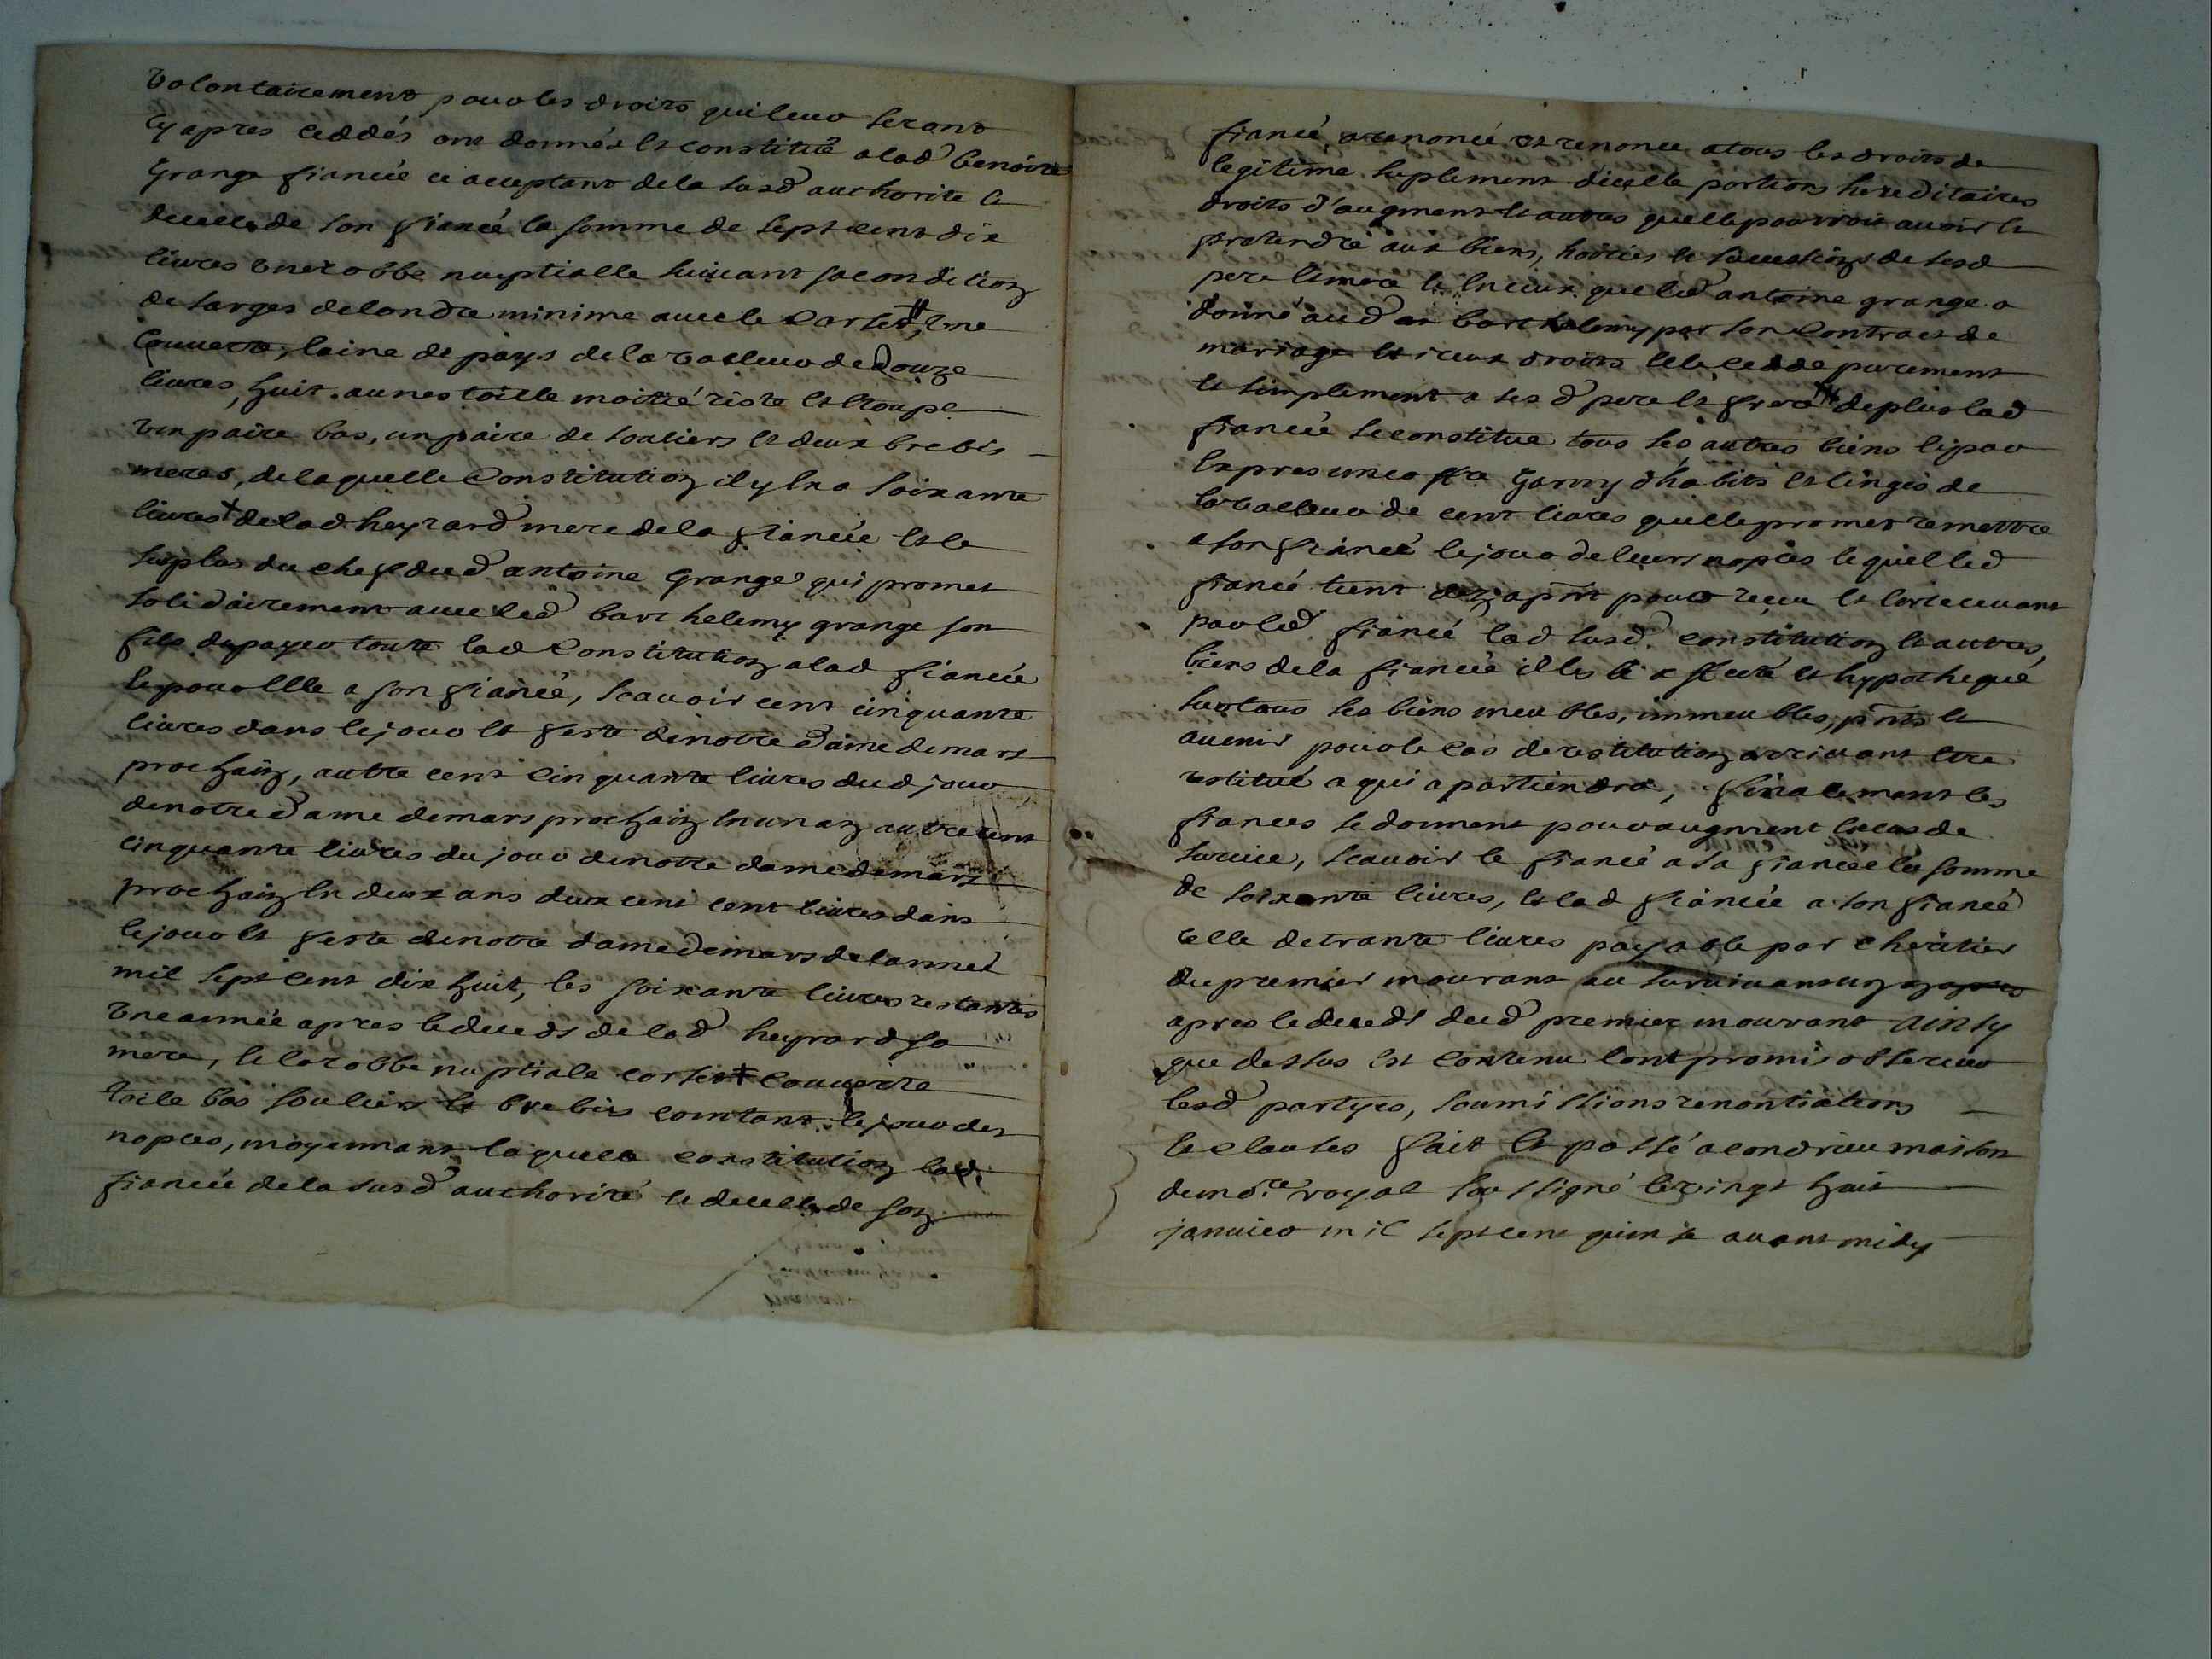 volontairement pour les droits qui leur seront
cy apres ceddés ont donnés et constitué a lad benoite
Grange fiancée ce acceptant de la susd authorité et
de celle de son fiancé la somme de sept cent dix
livres une robbe nuptialle suivant sa condition
de sarges de londre minime avec le corset # une
couverte laine de pays de la valleur de Douze
livres, huit aunes toille moitié riste et etoupe
une paire bas, un paire de souliers et deux brebis
meres, de laquelle Constitution il y en a soixante
livres + de lad heyrard mere de la fiancée et le
surplus du chef dud antoine Grange qui promet
solidairement avec led barthelemy grange son
fils de payer toute lad Constitution a lad fiancée
et pour elle a son fiancé, scavoir cent cinquante
livres dans le jour et feste de notre dame de mars
prochain, autre cent cinquante livres dud jour
de notre dame de mars prochain en un an autre cent
cinquante livres du jour de notre dame de mars
prochain en deux ans deux cent cent livres dans
le jour et feste de notre dame de mars de lannee
mil sept cent dix huit, les soixante livres restantes
une année apres le deceds de lad heyrard sa
mere, et la robbe nuptiale corset # couverte
toile bas souliers et brebis comtant le jour des
nopces, moyennant laquelle constitution lad
fiancée de la susd authorité et de celle de son
fiancé, a renoncé et renonce a tous les droits de
legitime suplement dicelle portions hereditaires
droits d'augment et autres quelle pourroit avoir et
pretendre aux biens, hoiries et successions de sesd
pere et mere et en ceux que led antoine grange a
donné aud barthelemy par son Contract de
mariage et iceux droits elle cedde purement
et simplement a sesd pere et frere # de plus lad
fiancée se constitue tous ses autres biens et par
expres un coffre Garny d'habits et linges de
la valleur de cent livres quelle promet remettre
a son fiancé le jour de leurs nopces lequel led
fiancé tient dez apnt pour receu et en recevant
par led fiancé lad susd constitution et autres
biens de la fiancée il les a affecté et hypotheque
sur tous ses biens meubles, immeubles, pnts et
avenir pour le cas de restitution arrivant etre
restitué a qui apartiendra, finalement les
fiances se donnent pour augment en cas de
survie, scavoir le fiancé a sa fiancée la somme
de soixante livres, et lad fiancée a son fiancé
celle de trante livres payable par lheritier
du premier mourant au survivant un an apres
apres le deceds dud premier mourant ainsy
que dessus est contenu lont promis observer
lesd partyes, soumissions renontiations
et clauses fait et passé a condrieu maison
de nore royal soussigné le vingt huit
janvier mil sept cent quinse avant midy